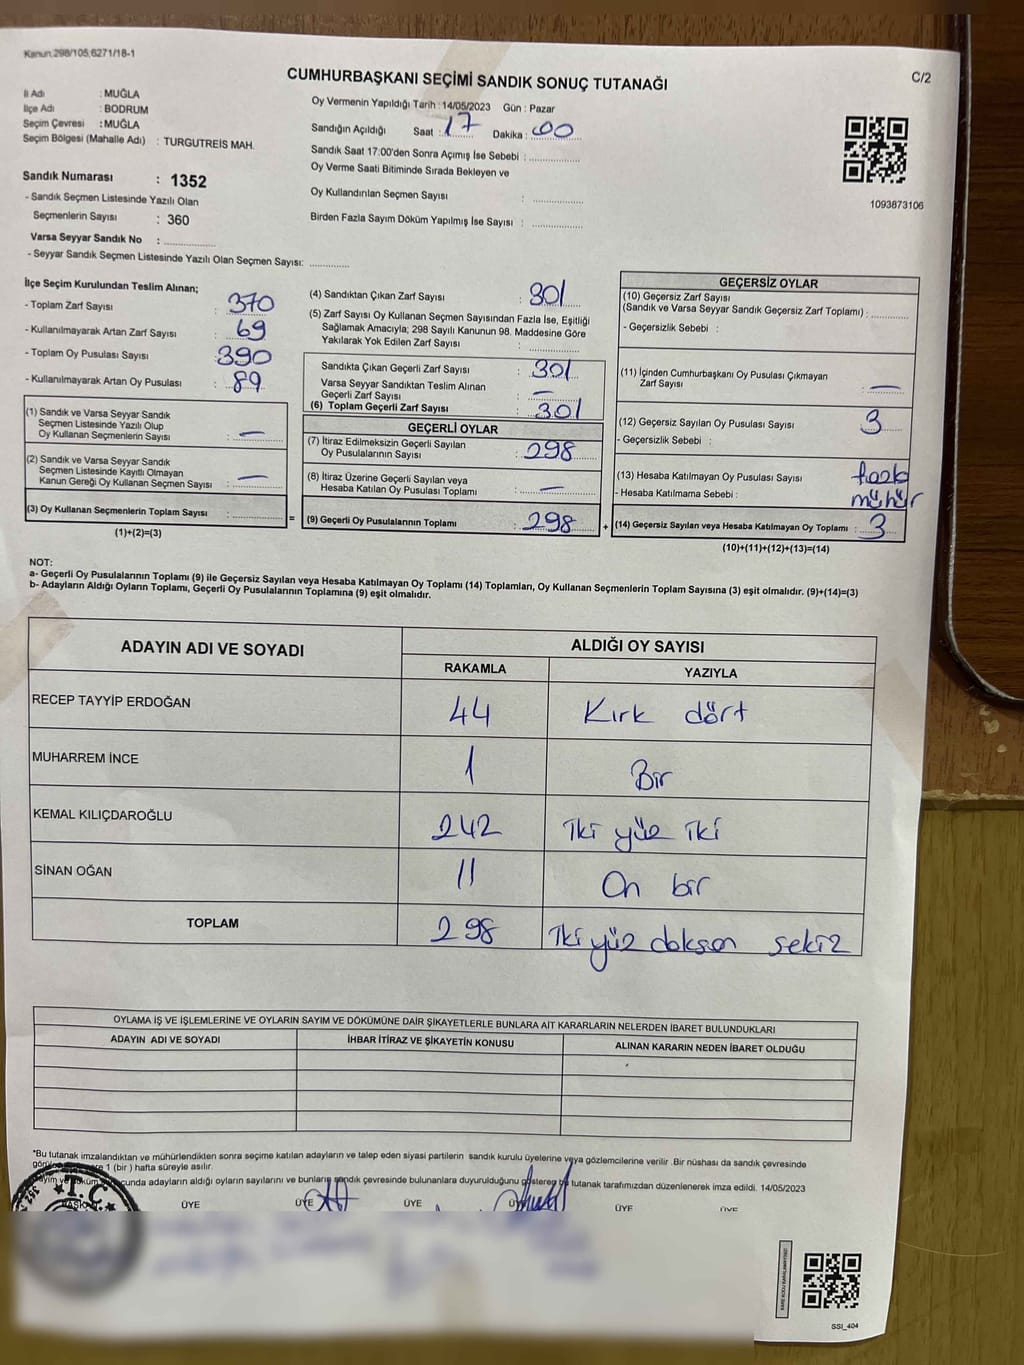 Kanun.298/105,6271/18-1
C/2
CUMHURBAŞKANI SEÇİMİ SANDIK SONUÇ TUTANAĞI
İl Adı : MUĞLA
İlçe Adı : BODRUM
Seçim Çevresi : MUĞLA
Seçim Bölgesi (Mahalle Adı) : TURGUTREİS MAH.
Oy Vermenin Yapıldığı Tarih : 14/05/2023 Gün : Pazar
Sandığın Açıldığı Saat : 17 Dakika : 00
Sandık Saat 17:00'den Sonra Açımış İse Sebebi :
Oy Verme Saati Bitiminde Sırada Bekleyen ve
Oy Kullandırılan Seçmen Sayısı :
Birden Fazla Sayım Döküm Yapılmış İse Sayısı :
1093873106
Sandık Numarası : 1352
- Sandık Seçmen Listesinde Yazılı Olan
Seçmenlerin Sayısı : 360
Varsa Seyyar Sandık No :
- Seyyar Sandık Seçmen Listesinde Yazılı Olan Seçmen Sayısı:
İlçe Seçim Kurulundan Teslim Alınan;
- Toplam Zarf Sayısı : 370
- Kullanılmayarak Artan Zarf Sayısı : 69
- Toplam Oy Pusulası Sayısı : 390
- Kullanılmayarak Artan Oy Pusulası : 89
(1) Sandık ve Varsa Seyyar Sandık
Seçmen Listesinde Yazılı Olup
Oy Kullanan Seçmenlerin Sayısı : —
(2) Sandık ve Varsa Seyyar Sandık
Seçmen Listesinde Kayıtlı Olmayan
Kanun Gereği Oy Kullanan Seçmen Sayısı : —
(3) Oy Kullanan Seçmenlerin Toplam Sayısı :
(1)+(2)=(3)
=
(4) Sandıktan Çıkan Zarf Sayısı : 301
(5) Zarf Sayısı Oy Kullanan Seçmen Sayısından Fazla İse, Eşitliği
Sağlamak Amacıyla; 298 Sayılı Kanunun 98. Maddesine Göre
Yakılarak Yok Edilen Zarf Sayısı :
Sandıkta Çıkan Geçerli Zarf Sayısı : 301
Varsa Seyyar Sandıktan Teslim Alınan
Geçerli Zarf Sayısı : —
(6) Toplam Geçerli Zarf Sayısı : 301
GEÇERLİ OYLAR
(7) İtiraz Edilmeksizin Geçerli Sayılan
Oy Pusulalarının Sayısı : 298
(8) İtiraz Üzerine Geçerli Sayılan veya
Hesaba Katılan Oy Pusulası Toplamı : —
(9) Geçerli Oy Pusulalarının Toplamı : 298
+
GEÇERSİZ OYLAR
(10) Geçersiz Zarf Sayısı
(Sandık ve Varsa Seyyar Sandık Geçersiz Zarf Toplamı) :
- Geçersizlik Sebebi :
(11) İçinden Cumhurbaşkanı Oy Pusulası Çıkmayan
Zarf Sayısı : —
(12) Geçersiz Sayılan Oy Pusulası Sayısı : 3
- Geçersizlik Sebebi :
(13) Hesaba Katılmayan Oy Pusulası Sayısı :
- Hesaba Katılmama Sebebi : mühür
(14) Geçersiz Sayılan veya Hesaba Katılmayan Oy Toplamı : 3
(10)+(11)+(12)+(13)=(14)
NOT:
a- Geçerli Oy Pusulalarının Toplamı (9) ile Geçersiz Sayılan veya Hesaba Katılmayan Oy Toplamı (14) Toplamları, Oy Kullanan Seçmenlerin Toplam Sayısına (3) eşit olmalıdır. (9)+(14)=(3)
b- Adayların Aldığı Oyların Toplamı, Geçerli Oy Pusulalarının Toplamına (9) eşit olmalıdır.
ADAYIN ADI VE SOYADI ALDIĞI OY SAYISI
RAKAMLA YAZIYLA
RECEP TAYYİP ERDOĞAN 44 Kırk dört
MUHARREM İNCE 1 Bir
KEMAL KILIÇDAROĞLU 242 iki yüz iki
SİNAN OĞAN 11 On bir
TOPLAM 298 iki yüz doksan sekiz
OYLAMA İŞ VE İŞLEMLERİNE VE OYLARIN SAYIM VE DÖKÜMÜNE DAİR ŞİKAYETLERLE BUNLARA AİT KARARLARIN NELERDEN İBARET BULUNDUKLARI
ADAYIN ADI VE SOYADI İHBAR İTİRAZ VE ŞİKAYETİN KONUSU ALINAN KARARIN NEDEN İBARET OLDUĞU
*Bu tutanak imzalandıktan ve mühürlendikten sonra seçime katılan adayların ve talep eden siyasi partilerin sandık kurulu üyelerine veya gözlemcilerine verilir .Bir nüshası da sandık çevresinde
1 (bir ) hafta süreyle asılır.
adayların aldığı oyların sayılarını ve bunların sandık çevresinde bulunanlara duyurulduğunu gösteren tutanak tarafımızdan düzenlenerek imza edildi. 14/05/2023
T.C.
ÜYE ÜYE ÜYE ÜYE ÜYE
SSI_404